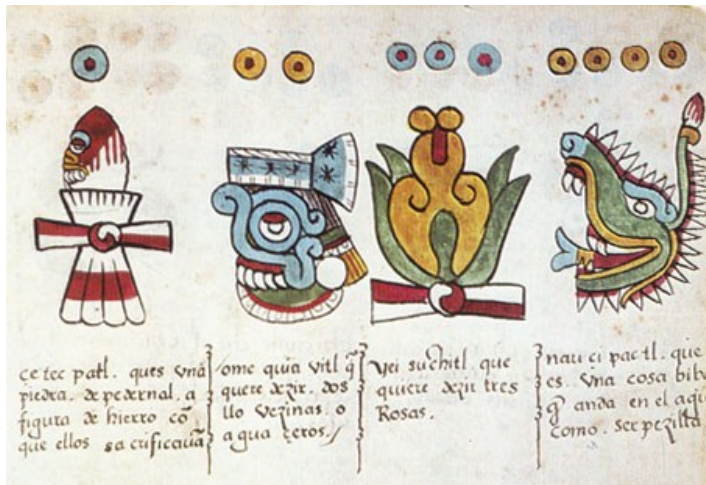 çe tec patl. ques vna
piedra. de pedernal. a
figura de hierro cõ
que ellos sa crificauã
ome quia vitl q̃
quere dezir. dos
llo vezinas. o
a gua çeros.
yei suchitl. que
quiere dezir tres
Rosas.
naui çi pac tl. que
es. vna cosa biba
q̃ anda en el agua
como. serpezilla